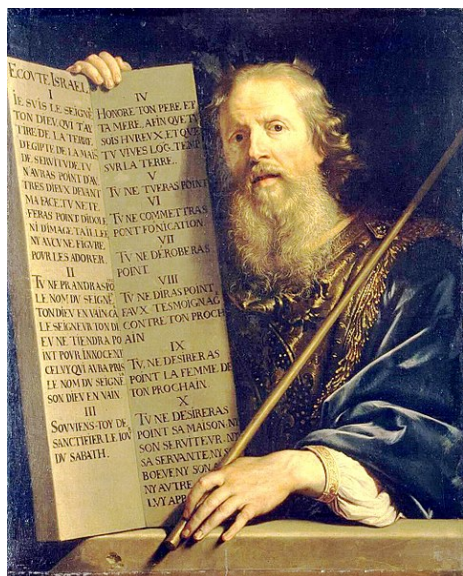 ECOVTE ISRAEL
I
IE SVIS LE SEIGNE
TON DIEV, QVI T'AY
TIRE DE LA TERRE
D'EGIPTE DE LA MAIS
DE SERVITVDE. TV
N'AVRAS POINT D'AV
TRES DIEVX DEVANT
MA FACE. TV NE TE
FERAS POINT D'IDOLE
NI D'IMAGE TAILLEE
NY AVCVNE FIGVRE
POVR LES ADORER.
II
TV NE PRANDRAS PO
LE NOM DV SEIGNE
TON DIEV EN VAIN, CA
LE SEIGNEVR TON DI
EV NE TIENDRA PO
INT POVR INNOCENT
CELVY QVI AVRA PRIS
LE NOM DV SEIGNE
SON DIEV EN VAIN
III
SOVVIENS-TOY DE
SANCTIFIER LE IOV
DV SABATH.
IV
HONORE TON PERE ET
TA MERE, AFIN QUE TV
SOIS HVREVX, ET QVE
TV VIVES LOG. TEMP
SVR LA TERRE.
V
TV NE TVERAS POINT
VI
TV NE COMMETTRAS
POINT FONICATION.
VII
TV NE DEROBERAS
POINT.
VIII
TV NE DIRAS POINT,
FAVX TESMOIGNAG
CONTRE TON PROCH
AIN
IX
TV, NE DESIRERAS
POINT LA FEMME DE
TON PROCHAIN.
X
TV NE DESIRERAS
POINT SA MAISON NI
SON SERVITEVR, NI
SA SERVANTE, NY SO
BOEVF, NY SON
NY AVTRE
LVY APP